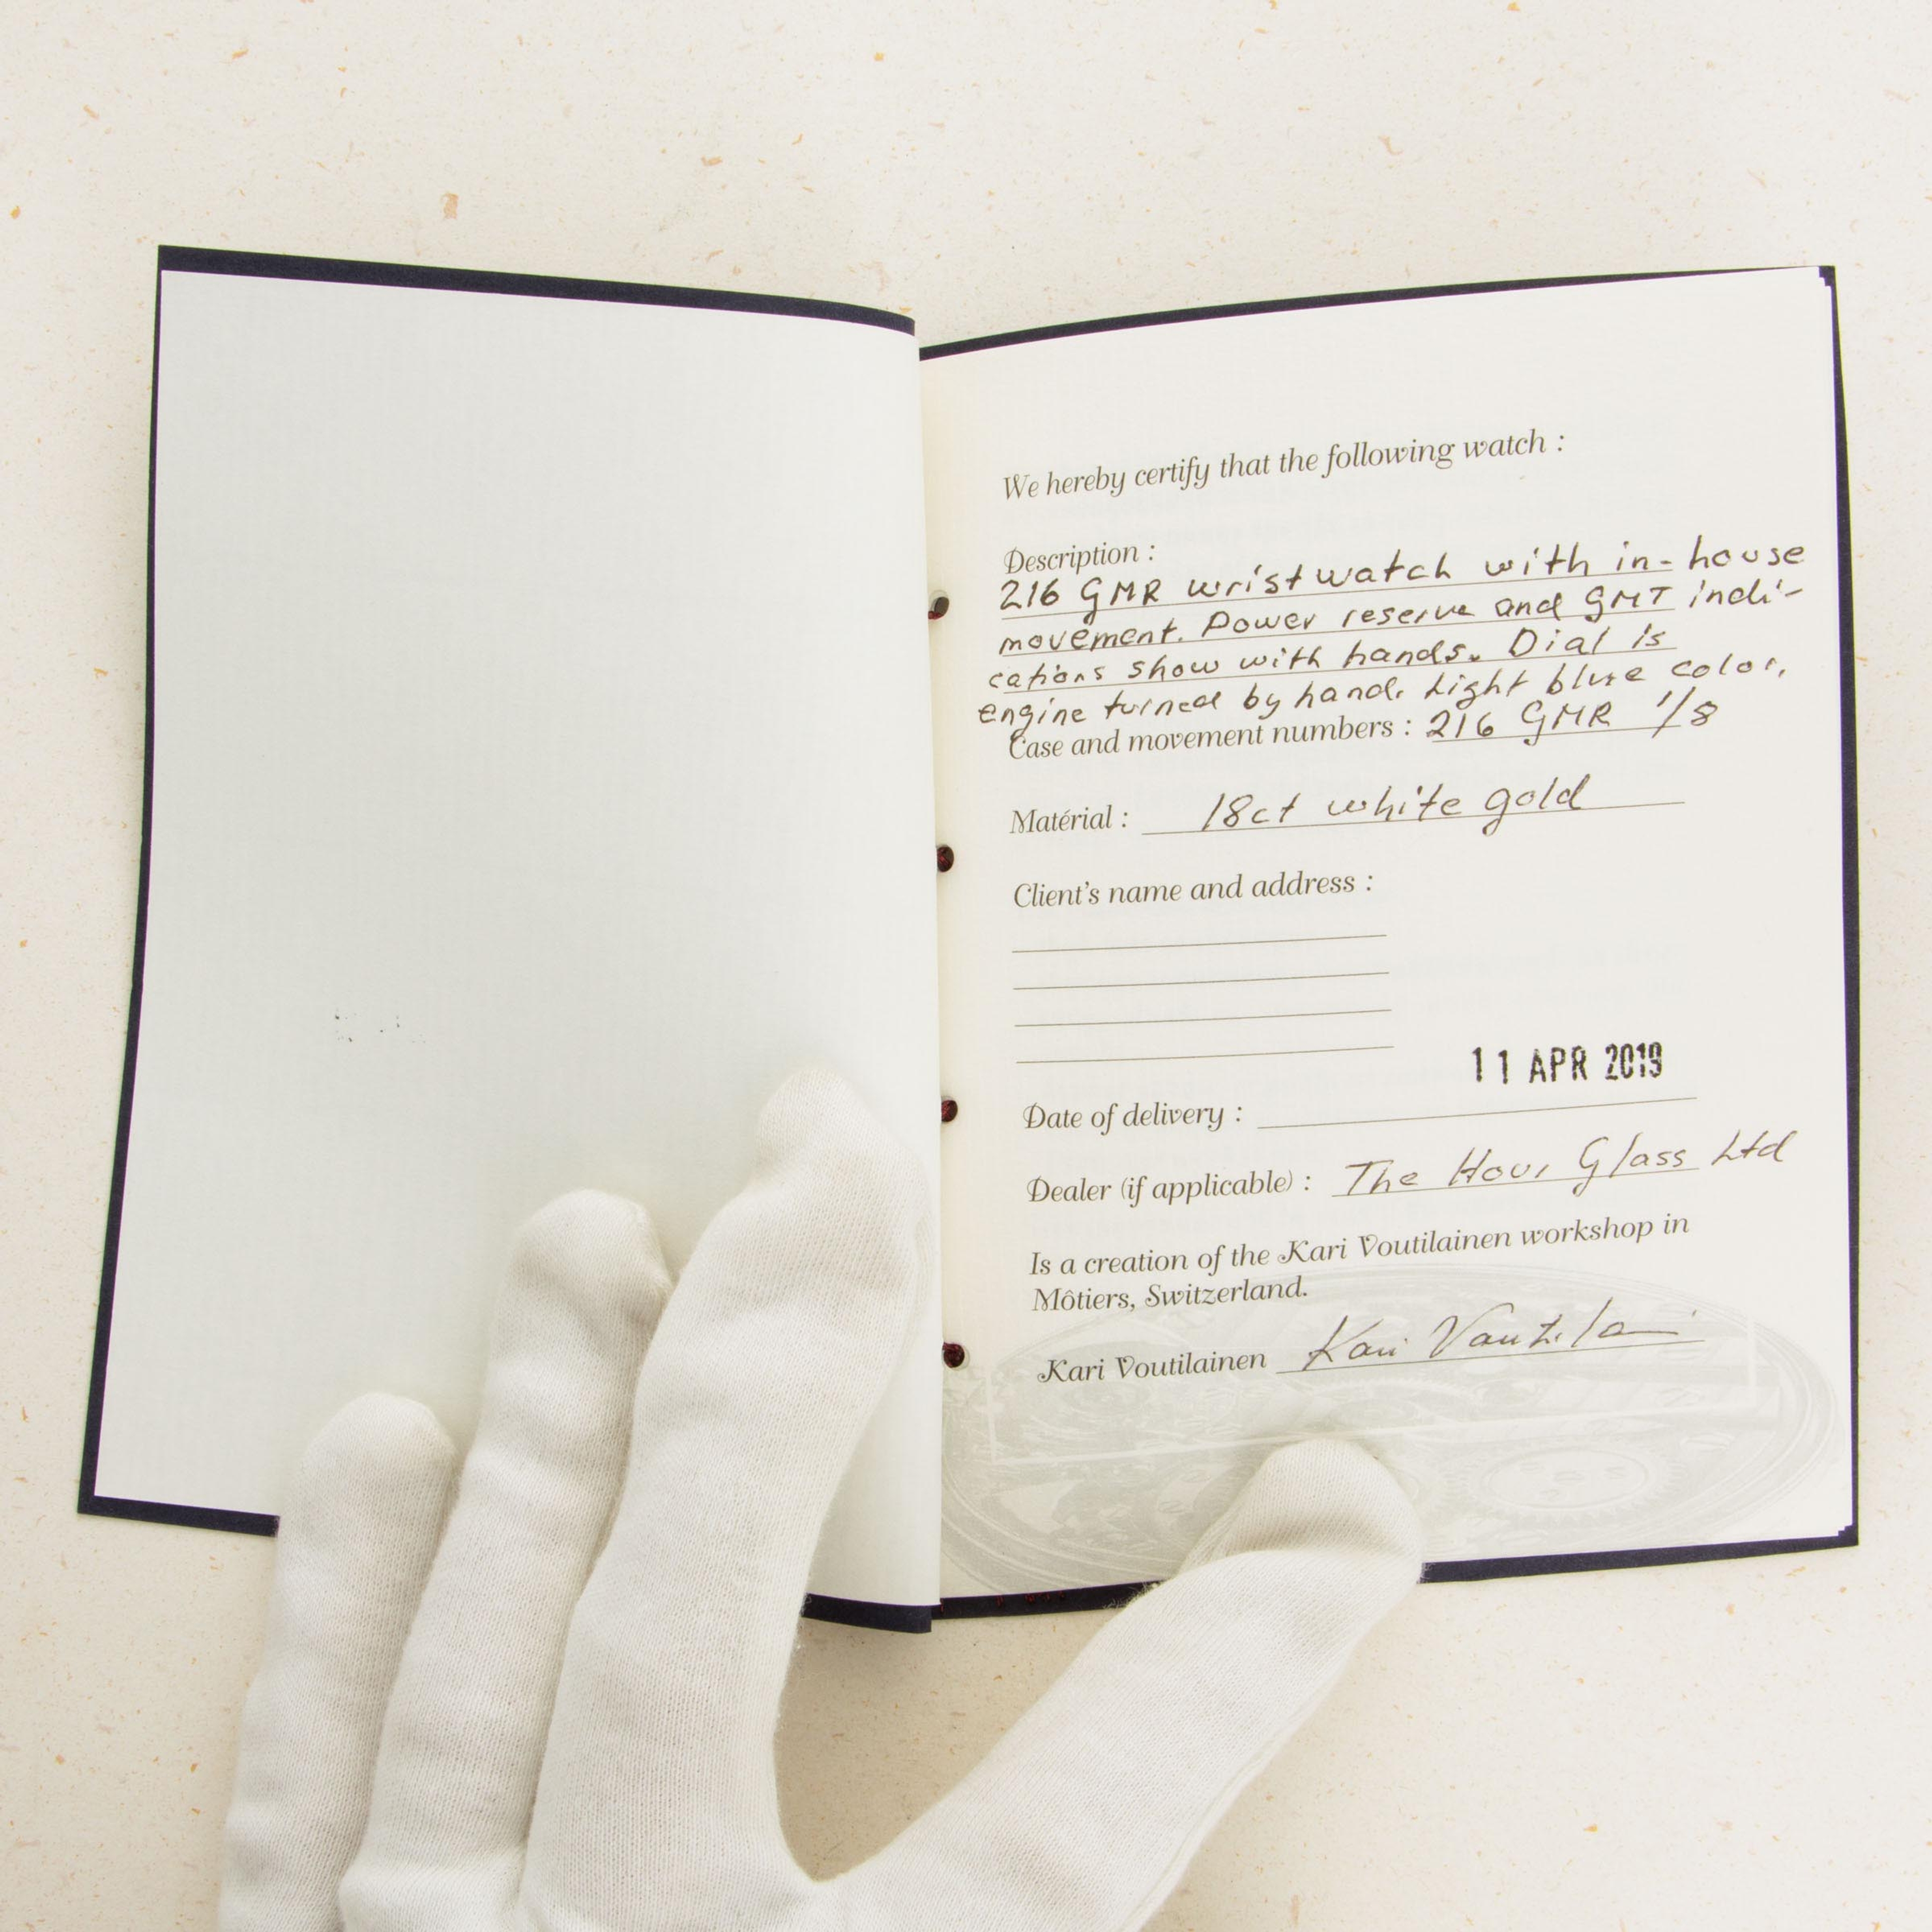 We hereby certify that the following watch :
Description :
216 GMR wristwatch with in-house
movement. Power reserve and GMT indi-
cations show with hands. Dial is
engine turned by hand. Light blue color.
Case and movement numbers : 216 GMR 1/8
Matérial : 18ct white gold
Client's name and address :
11 APR 2019
Date of delivery :
Dealer (if applicable) : The Hour Glass Ltd
Is a creation of the Kari Voutilainen workshop in
Môtiers, Switzerland.
Kari Voutilainen Kari Voutilainen